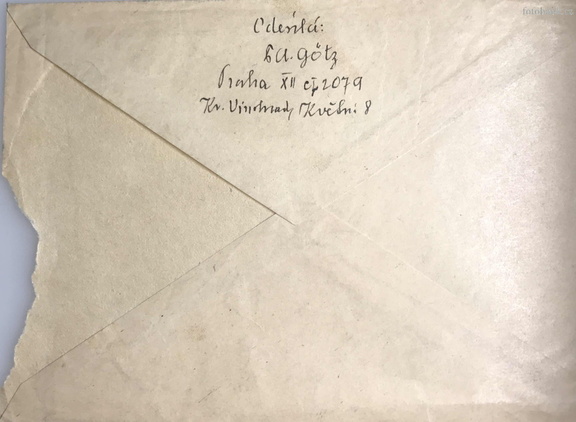 Odesílá:
Götz
Praha XII čp 2079
Kr. Vinohrady Květn. 8